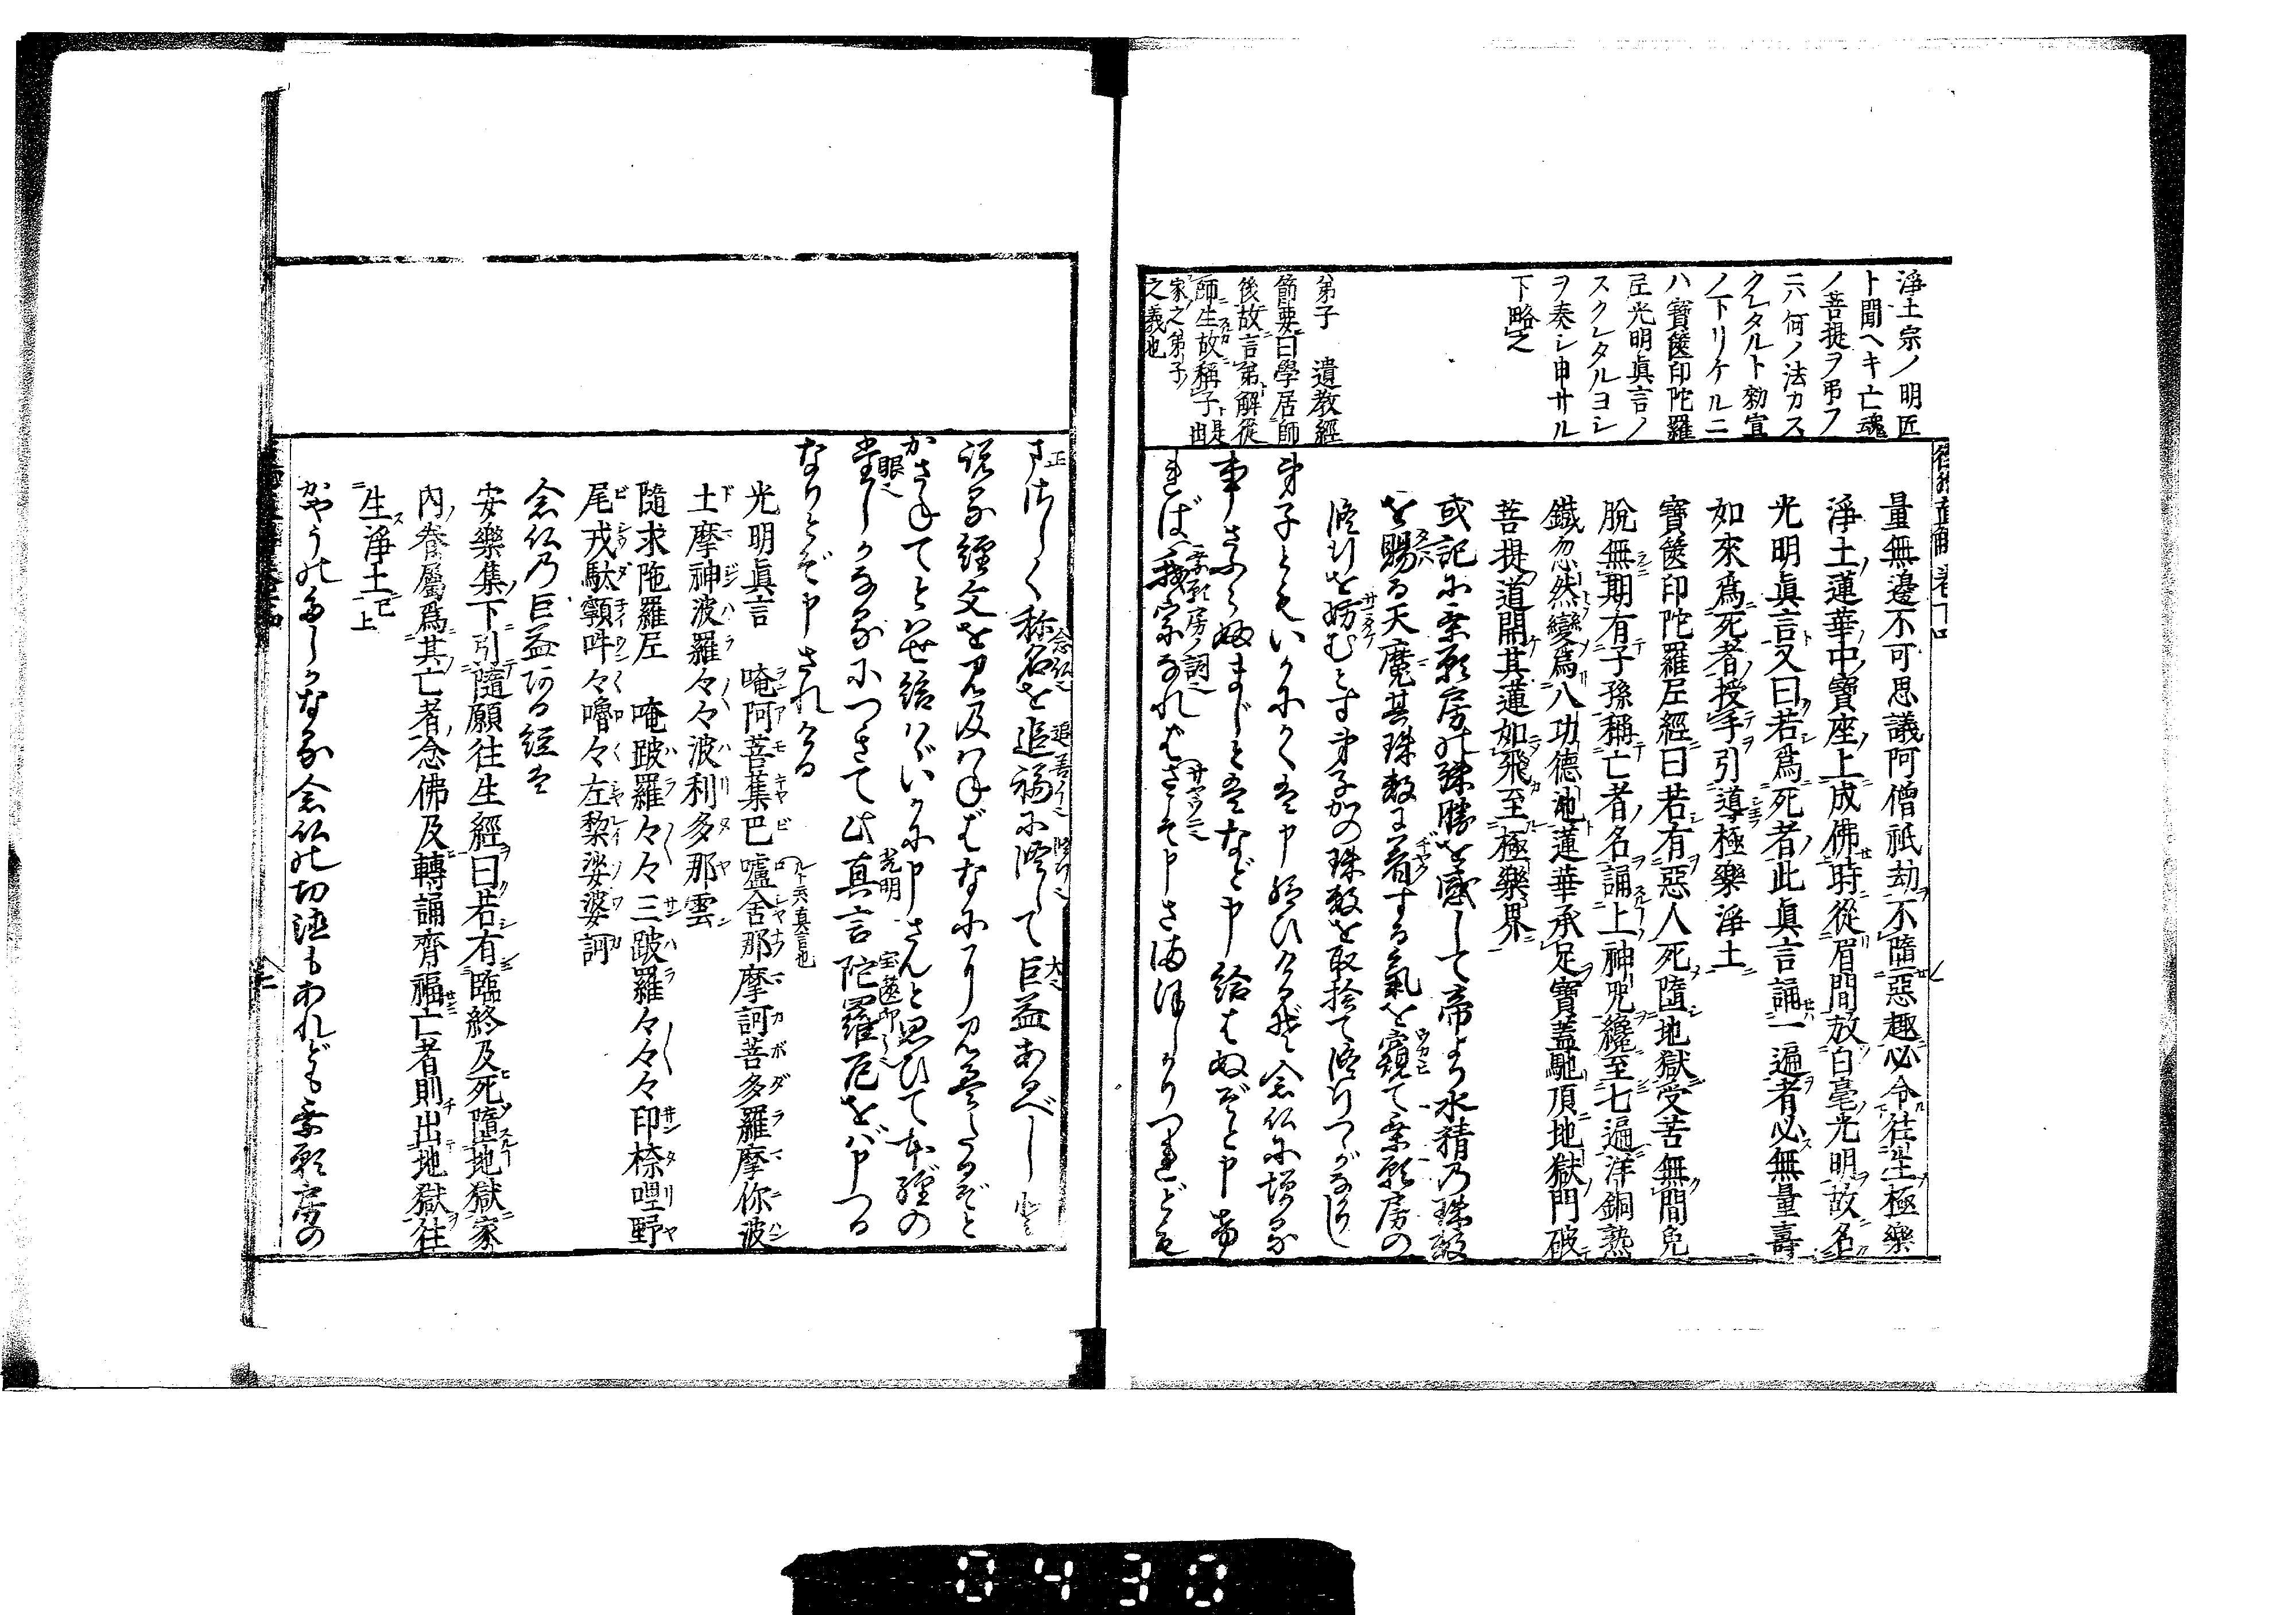 淨土宗ノ明匠
ト聞ヘキ亡魂
ノ菩提ヲ弔フ
ニハ何ノ法カス
クレタルト勅宣
ノ下リケルニ
ハ寶篋印陀羅
尼光明眞言ノ
スクレタルヨシ
ヲ奏シ申サル
下略之
弟子 遺教經
節要曰學居師
後故言弟解從
師生故稱子是
家之弟子ノ由
之義也
量無邊不可思議阿僧祇劫不隨惡趣必令往生極樂
淨土蓮華中寶座上成佛時從眉間放白毫光明故名
光明眞言又曰若爲死者此眞言誦一遍者必無量壽
如來爲死者授手引導極樂淨土
寶篋印陀羅尼經曰若有惡人死隨地獄受苦無間免
脫無期有子孫稱亡者名誦上神咒纔至七遍洋銅熱
鐵忽然變爲八功德池蓮華承足寶蓋馳頂地獄門破
菩提道開其蓮如飛至極樂界
或記に乘願房の殊勝を感して帝より水精乃珠數
を賜る天魔其珠數に着する氣を窺て乘願房の
修行を妨むとす弟子かの珠数を取捨て修行つゝがなし
弟子どもいかにかくは申給ひけるぞ念仏に增る
事さふらふまじとはなど申給はぬぞと申
ればわが宗なればさこそ申さまほしかりつれども
まさしく称名を追福に修して巨益あるべし
說る經文を見及はねばなにに見えたるぞと
かさねてとはせ給はゞいかゞ申さんと思ひて本經の
たしかなるにつきて此真言陀羅尼をば申つる
なりとぞ申されける
光明眞言 唵阿菩𦽦巴嚧舍那摩訶菩多羅摩你波
土摩神波羅々々波利多那雲
隨求陁羅尼 唵跛羅々々三跛羅々々々印㮈哩野
尾戎馱顎吽々嚕々左黎娑婆訶
念仏乃巨益ある經は
安樂集下引隨願往生經曰若有臨終及死墮地獄家
內眷屬爲其亡者念佛及轉誦齊福亡者則出地獄往
生淨土已上
かやうのたしかなる念仏の功德もあれども乘願房の